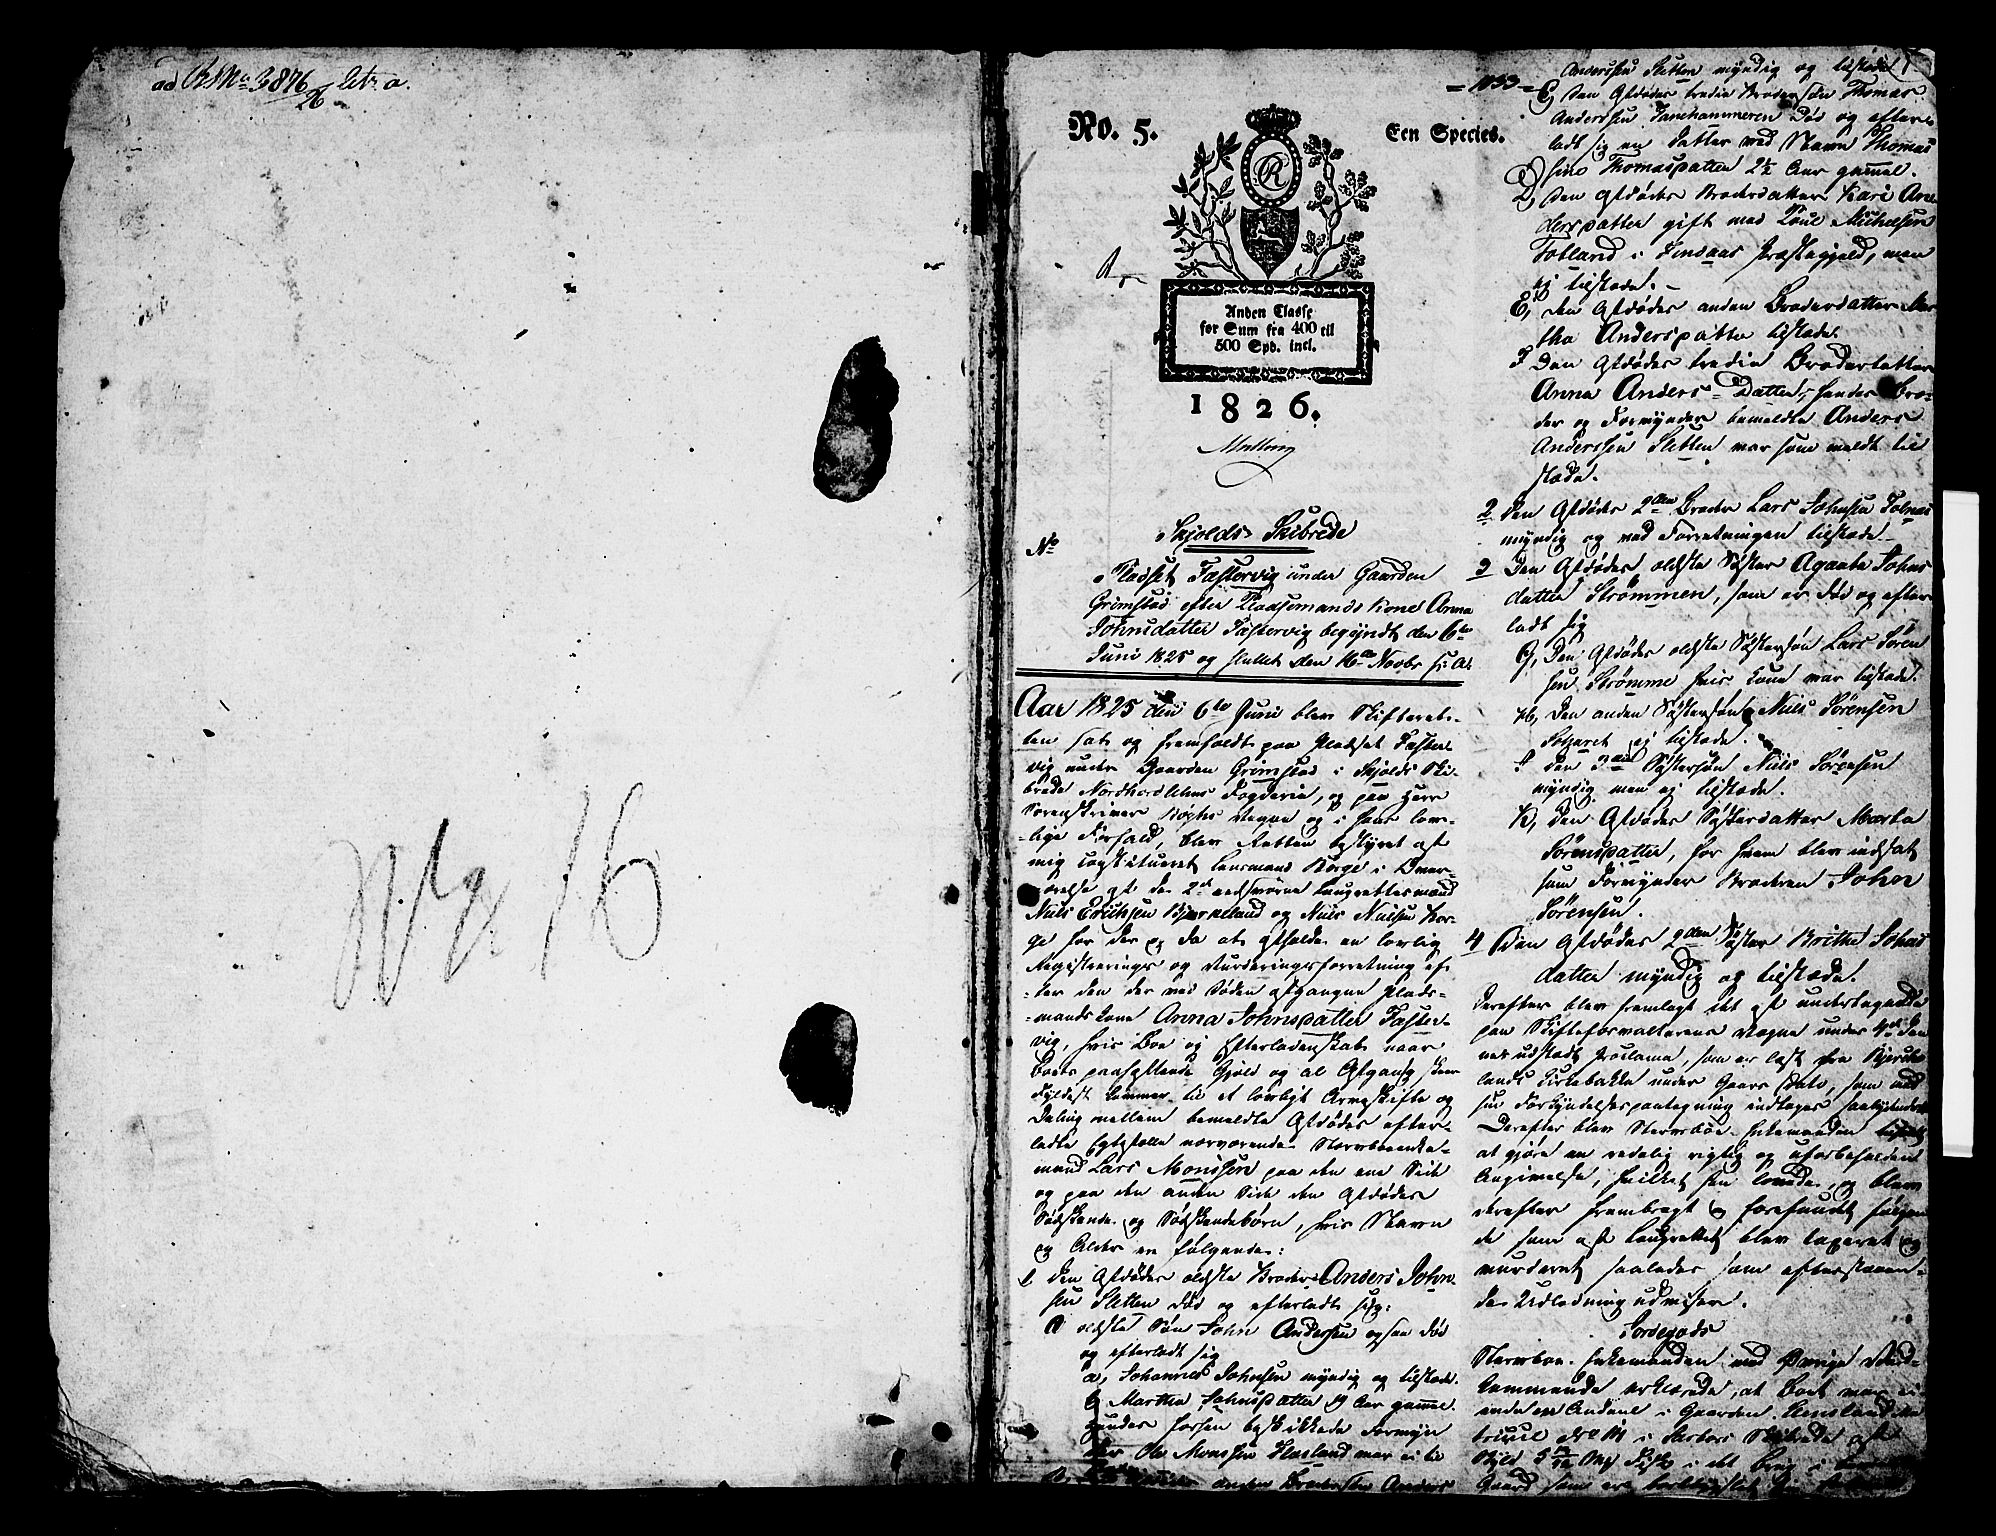 ad RNo 3876/26 Litr a.
No 16
No. 5.
Een Species.
R
Anden Classe
for Sum fra 400 til
500 Spd. incl.
1826.
Skjolds Skibrede
No
Pladset Fæstervig under Gaarden
Grimstad efter Pladsemands Kone Anna
Johnsdatter Fæstervig begyndt den 6te
Juni 1825 og sluttet den 16de Novbr s: A:
Aar 1825 den 6te Juni blev Skifteret-
ten sat og fremholdt paa Pladset Fæster-
vig under Gaarden Grimstad i Skjolds Ski-
brede Nordhordlehns Fogderie, og paa Herr
Sorenskriver Vegne og i hans lov-
lige Forfald, blev Retten bestyret af
mig constitueret Lensmand Borge i Over-
værelse af de 2de eedsvorne Laugrettesmænd
Niels Erichsen Bjørkeland og Niels Nielsen Bor-
ge for der og da at afholde en lovlig
Registrerings og Vurderingsforretning ef-
ter den der ved Døden afgangne Plads-
mands Kone Anna Johnsdatter Fæster-
vig, hvis Boe og Efterladenskab naar
Boets paahæftende Gjeld og al Afgang skeer
Fyldest kommer til et lovligt Arveskifte og
Deling mellem bemeldte Afdødes efter-
ladte Egtefælle nærværende Stervboeenke-
mand Lars Monssen paa den ene Side
og paa den anden Side den Afdødes
Sødskende og Sødskendebørn, hvis Navn
og Alder er følgende:
1 Den Afdødes ældste Broder Anders John-
sen Sletten død og efterladt sig:
A ældste Søn John Andersen ogsaa død
og efterladt sig
a, Johannes Johnsen myndig og tilstæde.
b Marthe Johnsdatter Aar gammel.
hendes forhen beskikkede Formyn
der Ole Monssen Hasland var ei til
stæde
B, anden Brodersøn Anders
1833
1
Anderssen Sletten myndig og tilstæde
C, Den Afdødes tredie Brodersøn Thomas
Anderssen Janehammeren død og efter-
ladt sig en Datter ved Navn Thomas
sine Thomasdatter 2½ Aar gammel.
D, Den Afdødes Broderdatter Kari An-
dersdatter gift med Poul Michelsen
Totland i Lindaas Præstegjeld, men
ej tilstæde.
E, Den Afdødes anden Broderdatter Mar-
tha Andersdatter tilstæde
F Den Afdødes tredie Broderdatter
Anna Anders-Datter, hendes Bro-
der og Formynder bemeldte Anders
Anderssen Sletten var som meldt til
stæde.
2 Den Afdødes 2den Broder Lars Johnsen Tolnæs
myndig og ved Forretningen tilstæde
3 Den Afdødes ældste Søster Agaata Johns
datter Strömmen, som er død og efter
ladt sig
G, Den Afdødes ældste Søstersøn Lars Sören
sen Strømme hvis Kone var tilstæde.
H, Den anden Søstersøn Niels Sörensen
ej tilstæde.
I Den 3die Søstersøn Niels Sörensen
myndig men ej tilstæde.
K, Den Afdødes Søsterdatter Marta
Sörensdatter, for hvem blev indsat
som Formynder Broderen John
Sörensen.
4 Den Afdødes 2den Søster Brithe Johns
datter myndig og tilstæde.
Derefter blev fremlagt det af undertegnede
paa Skifteforvalterens Vegne under 4de Den
nes udstædt Proclama, som er læst fra Bjerke
lands Kirkebakke under Gaars Dato, som med
sin Forkyndelsespaategning indtages saalydende
Derefter blev Stervboe-Enkemanden
at gjøre en redelig rigtig og uforbeholden
Angivelse, hvilket han lovede, og blev
derefter frembragt og forefundet følgen
de som af Laugrettet blev taxeret og
vurderet saaledes som efterstaaen-
de Udlodning udviser.
Jordegods
Stervboe-Enkemanden med øvrige Ved-
kommende erklærede, at Boet var ei-
ende en Andeel i Gaarden
i Skibrede af
Skyld i det Brug i
Gaard som er